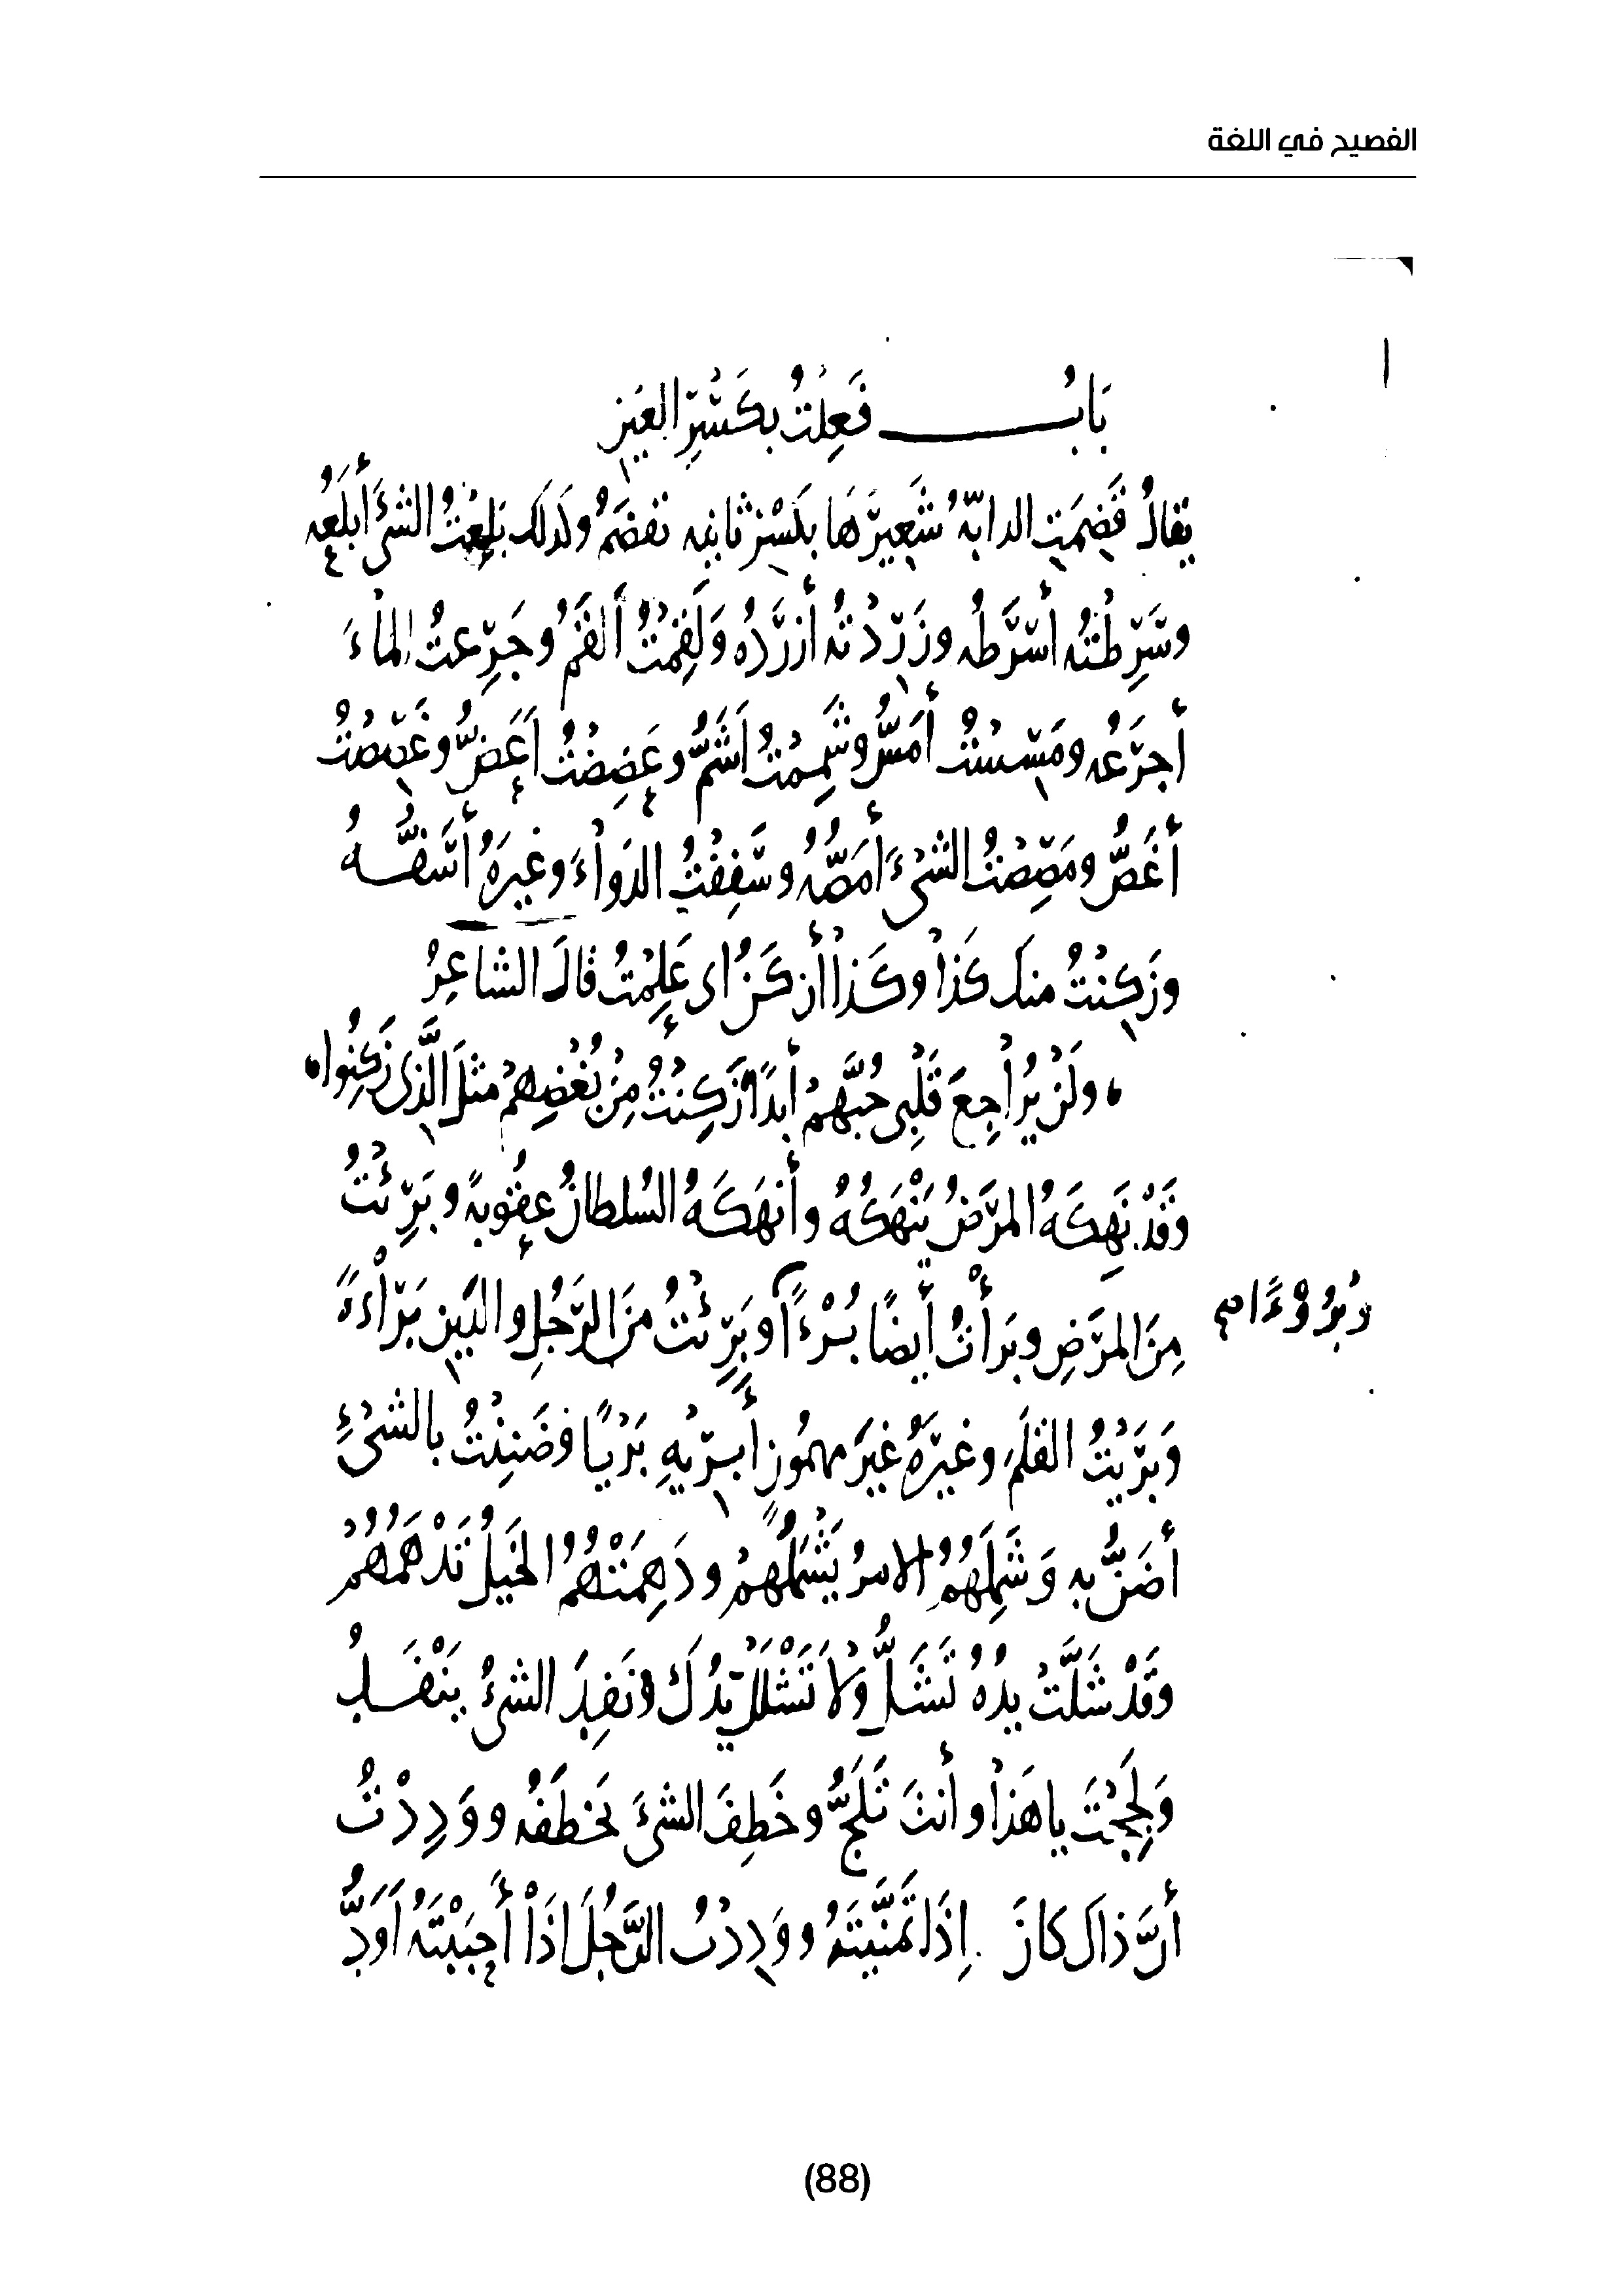 الفصيح في اللغة
بَابُ فَعِلْتُ بِكَسْرِ العَيْنِ
يقالُ قَضِمَتِ الدابّةُ شَعِيرَهَا بكَسْرِ ثانيه تقضَمُ وكذلك بَلِعْتُ الشيْءَ أَبْلَعُه
وسَرِطْتُه أَسْرَطُه وزَرِدْتُه أَزرَدُه وَلَقِمْتُ أَلقَمُ وجَرِعتُ الماءَ
أَجرَعُه ومَسِسْتُ أَمَسُّ وشَمِمْتُ أَشَمُّ وعَضِضْتُ أَعَضُّ وغَصِصْتُ
أَغَصُّ ومَصِصْتُ الشيْءَ أَمَصُّهُ وسَفِفْتُ الدَواءَ وغيرَهُ أَسَفُّهُ
وزَكِنْتُ منك كَذا وكَذا أَزكَنُ اى عَلِمْتُ قالَ الشاعِرُ
ولَنْ يُراجِعَ قَلْبِى حُبَّهُمْ أَبدًا زَكِنْتُ مِنْ بُغْضِهِمْ مثلَ الَّذى زَكِنُوا
وقَدْ نَهِكَهُ المَرَضُ يَنْهَكُهُ وأَنهَكَهُ السُلطانُ عقُوبةً وبَرِئْتُ
مِنَ المَرَضِ وبَرَأْتُ أَيضًا بُرْءًا وبَرِئْتُ مِنَ الرَّجُلِ والدَين بَرَاءَةً
وبُرُوْءًا صح
وَبَرَيْتُ القلَمَ وغيرَهُ غيرَ مهمُوزٍ أَبرِيهِ بَرْيًا وضَنِنْتُ بالشيْءِ
أَضَنُّ به وَشَمِلَهُمُ الامرُ يَشْمَلُهُمْ ودَهِمَتْهُمُ الخَيلُ تَدْهَمُهُمْ
وقَدْ شَلَّتْ يدُهُ تَشَلُّ ولاَ تَشْلَلْ يَدُكَ ونَفِدَ الشيءُ ينْفَدُ
وَلَجِجْتَ يا هَذا وأَنتَ تَلَجُّ وخَطِفَ الشيءَ يَخطَفُه ووَدِدْتُ
أَنَّ ذاكَ كانَ إِذَا تَمَنَّيْتَهُ ووَدِدْتُ الرَّجُلَ إذَا أَحبَبْتَهُ أَوَدُّ
(88)